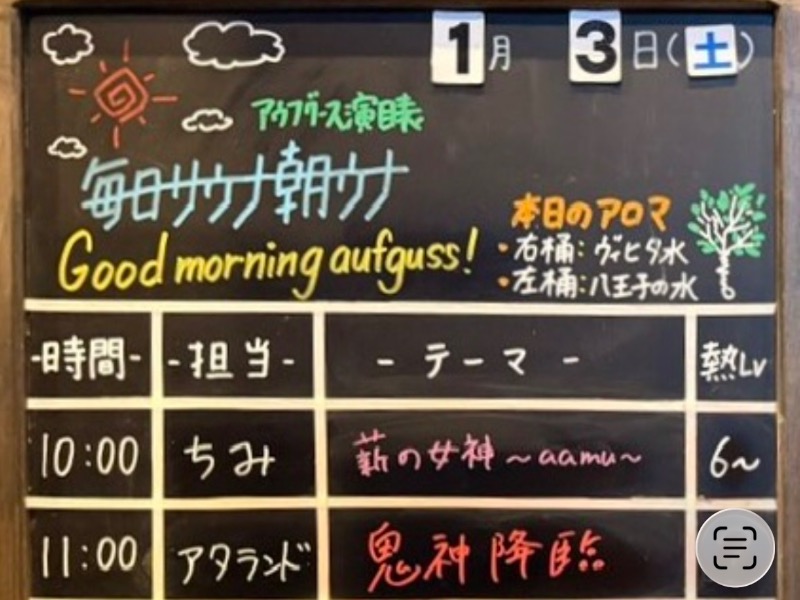 1月 3日(土)
アウフグース演目表
毎日サウナ朝ウナ
Good morning aufguss!
本日のアロマ
・右桶：ヴィヒタ水
・左桶：八王子の水
-時間- -担当- -テーマ- 熱Lv
10:00 ちみ 薪の女神～aamu～ 6～
11:00 アタランド 鬼神降臨